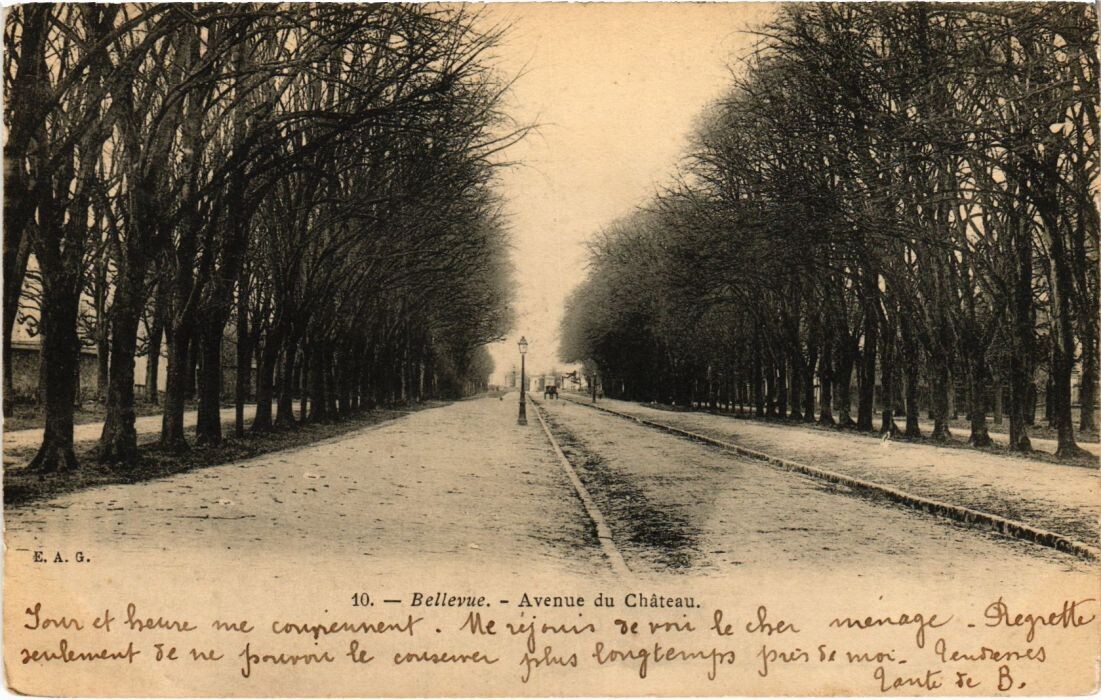 E. A. G.
10. — Bellevue. - Avenue du Château.
Jour et heure me conviennent. Me réjouis de voir le cher ménage - Regrette
seulement de ne pouvoir le conserver plus longtemps près de moi - Tendresses
Tante de B.